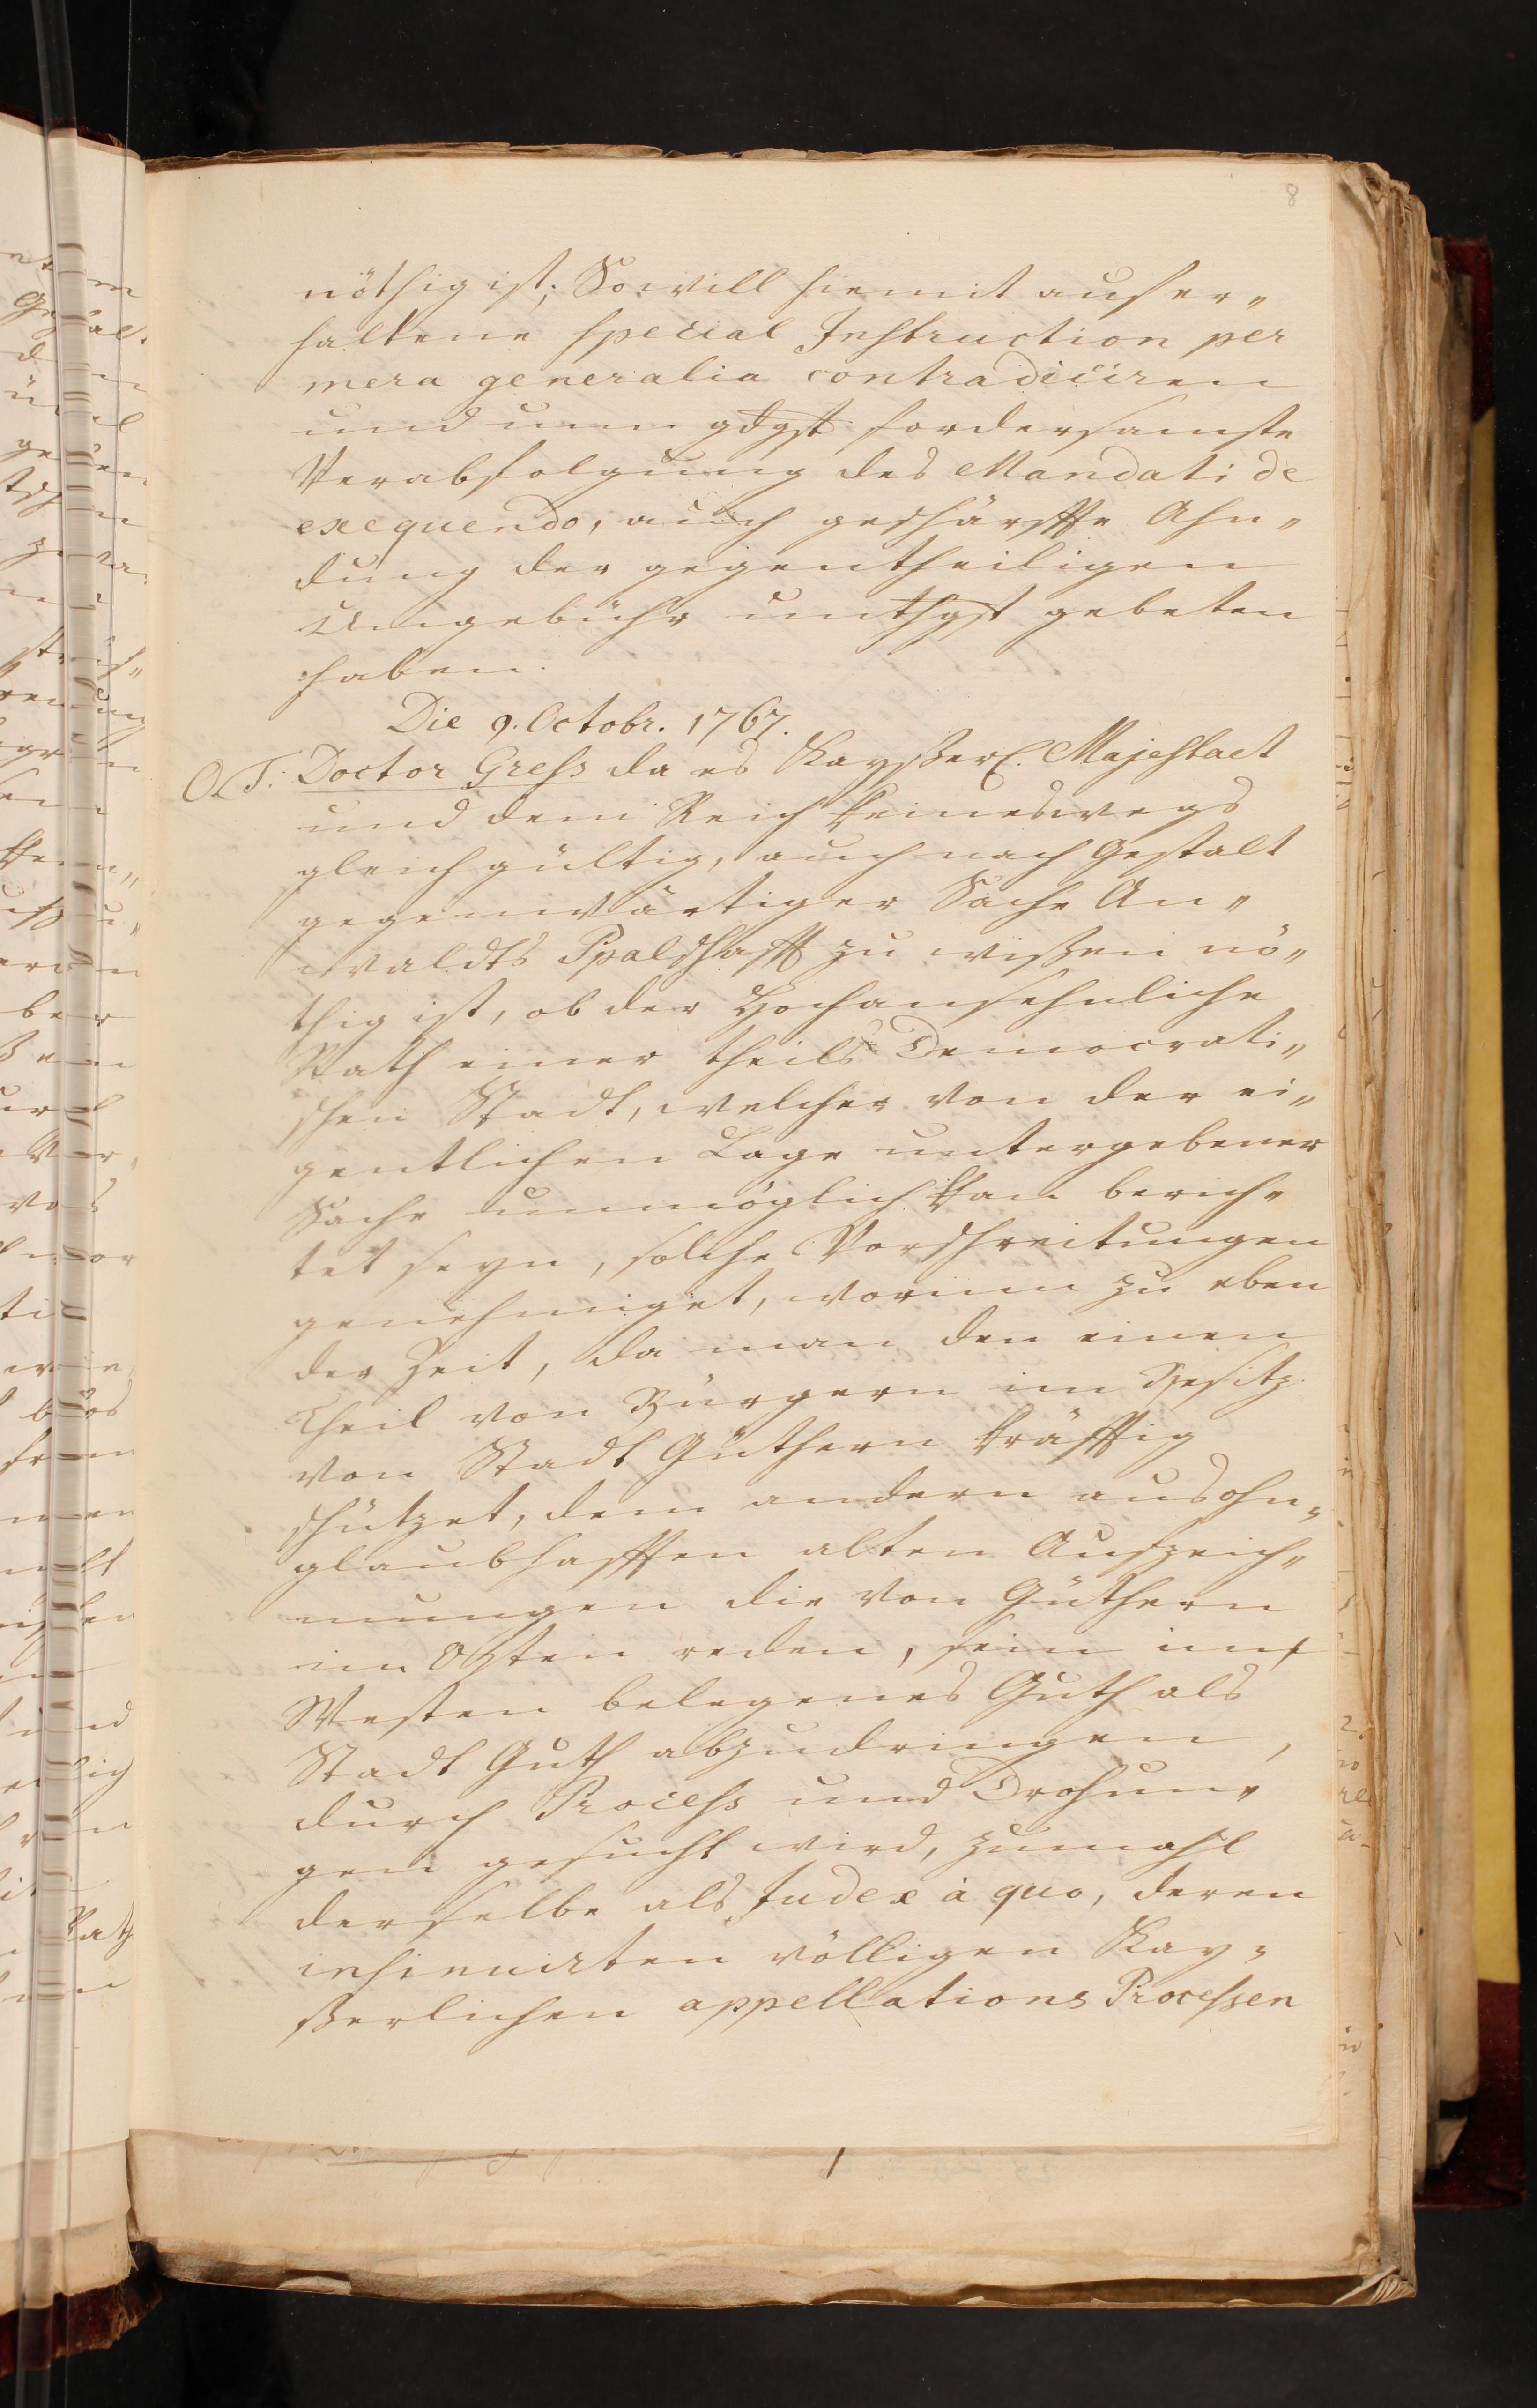 8
nöthig ist; So will hiemit auf er„
haltene special Instruction per
mera generalia contradiciren
und um gdgst fordersamste
Verabfolgung des Mandati de
exequendo, auch geschärffte Ahn„
dung der gegentheiligen
Ungebühr unthgst gebeten
haben.
Die 9. Octobr. 1767.
O. T. Doctor Gress da es Kayßerl. Majestaet
und dem Reich keineswegs
gleichgültig, auch nach Gestalt
gegenwärtiger Sache An„
waldts Ppalschafft zu wißen nö„
thig ist, ob der Hochansehnliche
Rath einer theils Democrati„
schen Stadt, welcher von der ei„
gentlichen Lage untergebener
Sache unmöglich kan berich„
tet seyn, solche Vorschreitungen
genehmiget, worinn zu eben
der Zeit, da man den einen
Theil von Bürgern im Besitz
von Stadt Güthern kräfftig
schützet, dem andern aus ohn„
glaubhafften alten Aufzeich„
nungen die von Güthern
im Osten reden, sein im
Westen belegenes Guth als
Stadt Guth abzudringen,
durch Process und Drohun„
gen gesucht wird, zumahl
derselbe als Judex à quo, deren
insinuirten völligen Kay„
ßerlichen appellations Processen